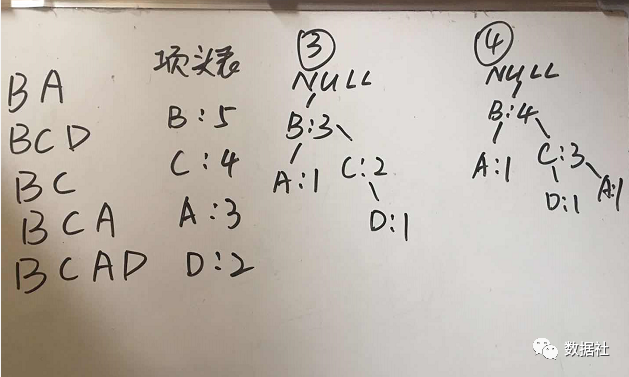 BA
BCD
BC
BCA
BCAD
项头表
B:5
C:4
A:3
D:2
③
NULL
B:3
A:1 C:2
D:1
④
NULL
B:4
A:1 C:3
D:1 A:1
数据社